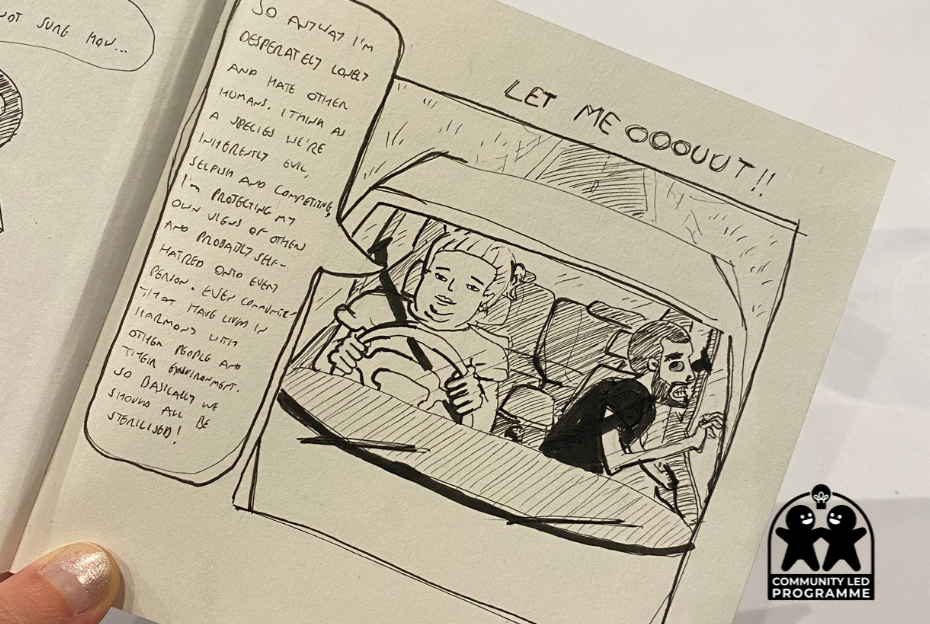 NOT SURE HOW...
SO ANYWAY I'M
DESPERATELY LONELY
AND HATE OTHER
HUMANS. I THINK AS
A SPECIES WE'RE
INHERENTLY EVIL,
SELFISH AND COMPETITIVE,
I'M PROTECTING MY
OWN VIEWS OF OTHERS
AND PROBABLY SELF-
HATRED ONTO EVERY
PERSON. EVEN
THAT HAVE LIVED IN
HARMONY WITH
OTHER PEOPLE AND
THEIR ENVIRONMENT.
SO BASICALLY WE
SHOULD ALL BE
STERILISED!
LET ME OOOUUT!!
COMMUNITY LED
PROGRAMME